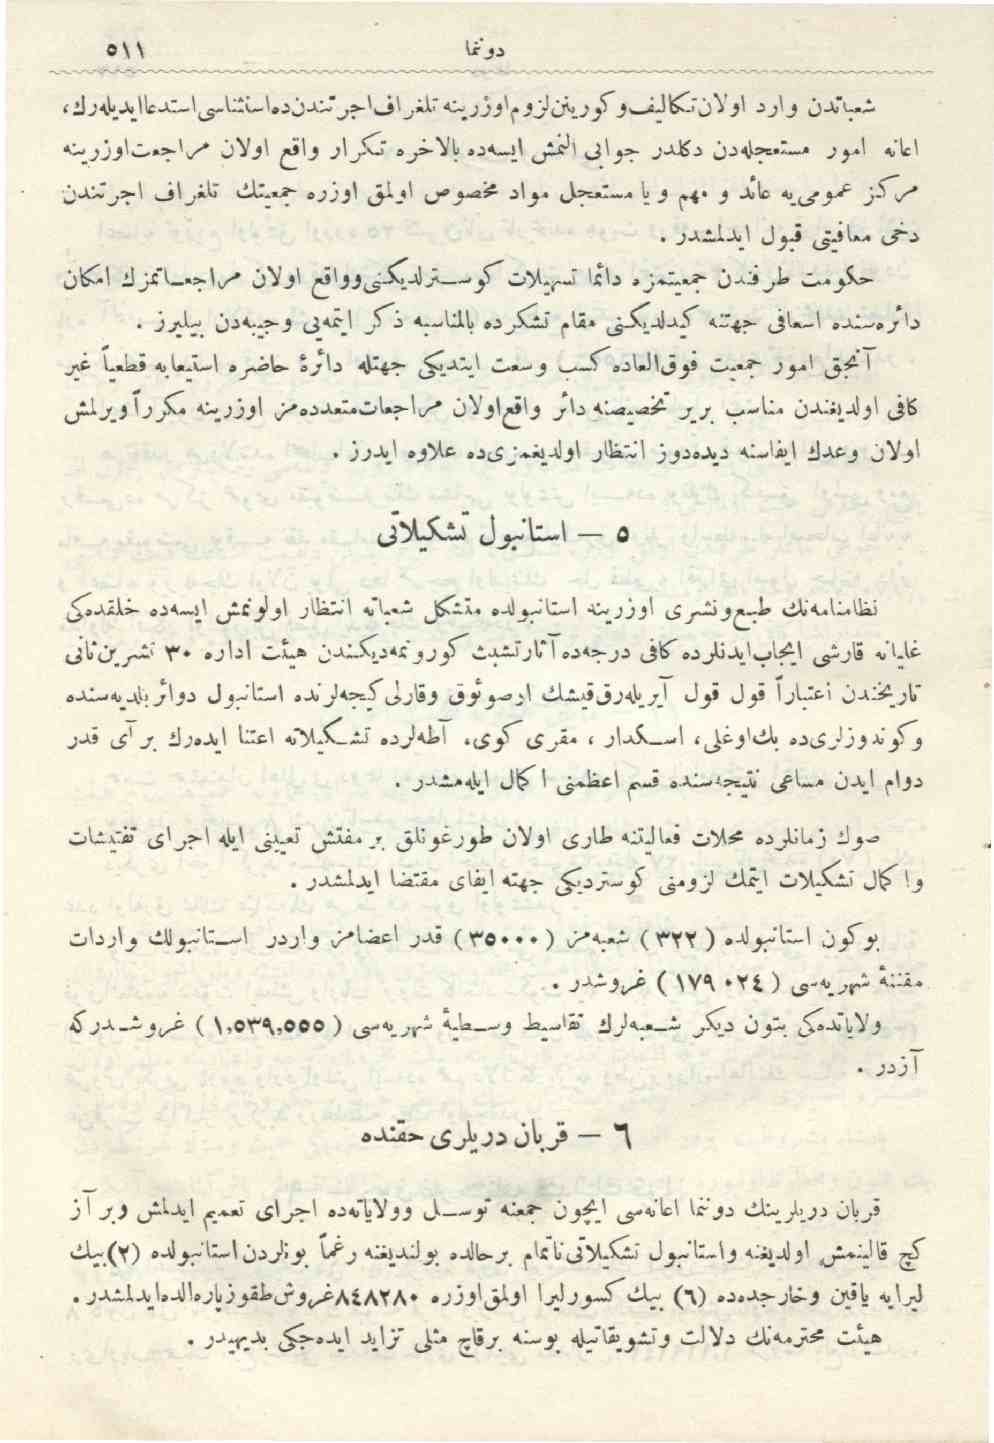 دوننما
٥١١
شعباتدن وارد اولان تكاليف و كورينن لزوم اوزرينه تلغراف اجرتندن ده استثناسى استدعا ايديله رك،
اعانه امور مستعجله دن دكلدر جوابى النمش ايسه ده بالاخره تكرار واقع اولان مراجعت اوزرينه
مركز عمومى يه عائد و مهم و يا مستعجل مواد مخصوص اولمق اوزره جمعيتك تلغراف اجرتندن
دخى معافيتى قبول ايدلمشدر .
حكومت طرفندن جمعيتمزه دائما تسهيلات كوسترلديكنى وواقع اولان مراجعاتمزك امكان
دائره سنده اسعافى جهتنه كيدلديكنى مقام تشكرده بالمناسبه ذكر ايتمه يى وجيبه دن بيليرز .
آنجق امور جمعيت فوق العاده كسب وسعت ايتديكى جهتله دائرۀ حاضره استيعابه قطعياً غير
كافى اولديغندن مناسب برير تخصيصنه دائر واقع اولان مراجعات متعدده مز اوزرينه مكرراً ويرلمش
اولان وعدك ايفاسنه ديده دوز انتظار اولديغمزى ده علاوه ايدرز .
٥ — استانبول تشكيلاتى
نظامنامه نك طبع و نشرى اوزرينه استانبولده متشكل شعباته انتظار اولونمش ايسه ده خلقده كى
غليانه قارشى ايجاب ايدنلرده كافى درجه ده آثار تشبث كورونمه ديكندن هيئت اداره ٣٠ تشرين ثانى
تاريخندن اعتباراً قول قول آيريله رق قيشك اڭ صوئوق وقارلى كيجه لرنده استانبول دوائر بلديه سنده
وكوندوزلرى ده بك اوغلى، اسكدار ، مقرى كوى، آطه لرده تشكيلاته اعتنا ايده رك بر آى قدر
دوام ايدن مساعى نتيجه سنده قسم اعظمنى اكمال ايله مشدر .
صوك زمانلرده محلات فعاليتنه طارى اولان طورغونلق بر مفتش تعيينى ايله اجراى تفتيشات
و اكمال تشكيلات ايتمك لزومنى كوسترديكى جهته ايفاى مقتضا ايدلمشدر .
بوكون استانبولده (٣٢٢) شعبه مز (٣٥٠٠٠) قدر اعضامز واردر استانبولك واردات
مقننۀ شهريه سى (١٧٩٠٢٤) غروشدر .
ولاياتده كى بتون ديكر شعبه لرك تقاسيط وسطيۀ شهريه سى (١,٥٣٩,٥٥٥) غروشدركه
آزدر .
٦ — قربان دريلرى حقنده
قربان دريلرينك دوننما اعانه سى ايچون جمعنه توسل وولاياته ده اجراى تعميم ايدلمش وبر آز
كچ قالينمش اولديغنه و استانبول تشكيلاتى ناتمام برحالده بولنديغنه رغماً بونلردن استانبولده (٢) بيك
ليرايه ياقين وخارجده ده (٦) بيك كسور ليرا اولمق اوزره ٨٤٨٢٨٠ غروش طقوز پاره الده ايدلمشدر .
هيئت محترمه نك دلالت وتشويقاتيله بوسنه برقاچ مثلى تزايد ايده جكى بديهيدر .